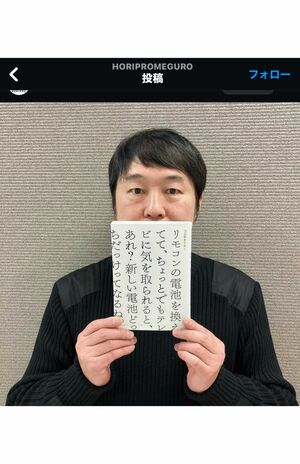 HORIPROMEGURO
投稿
フォロー
リモコンの電池を換え
てて、ちょっとでもテレ
ビに気を取られると、
あれ？新しい電池どっ
ちだっけってなるね